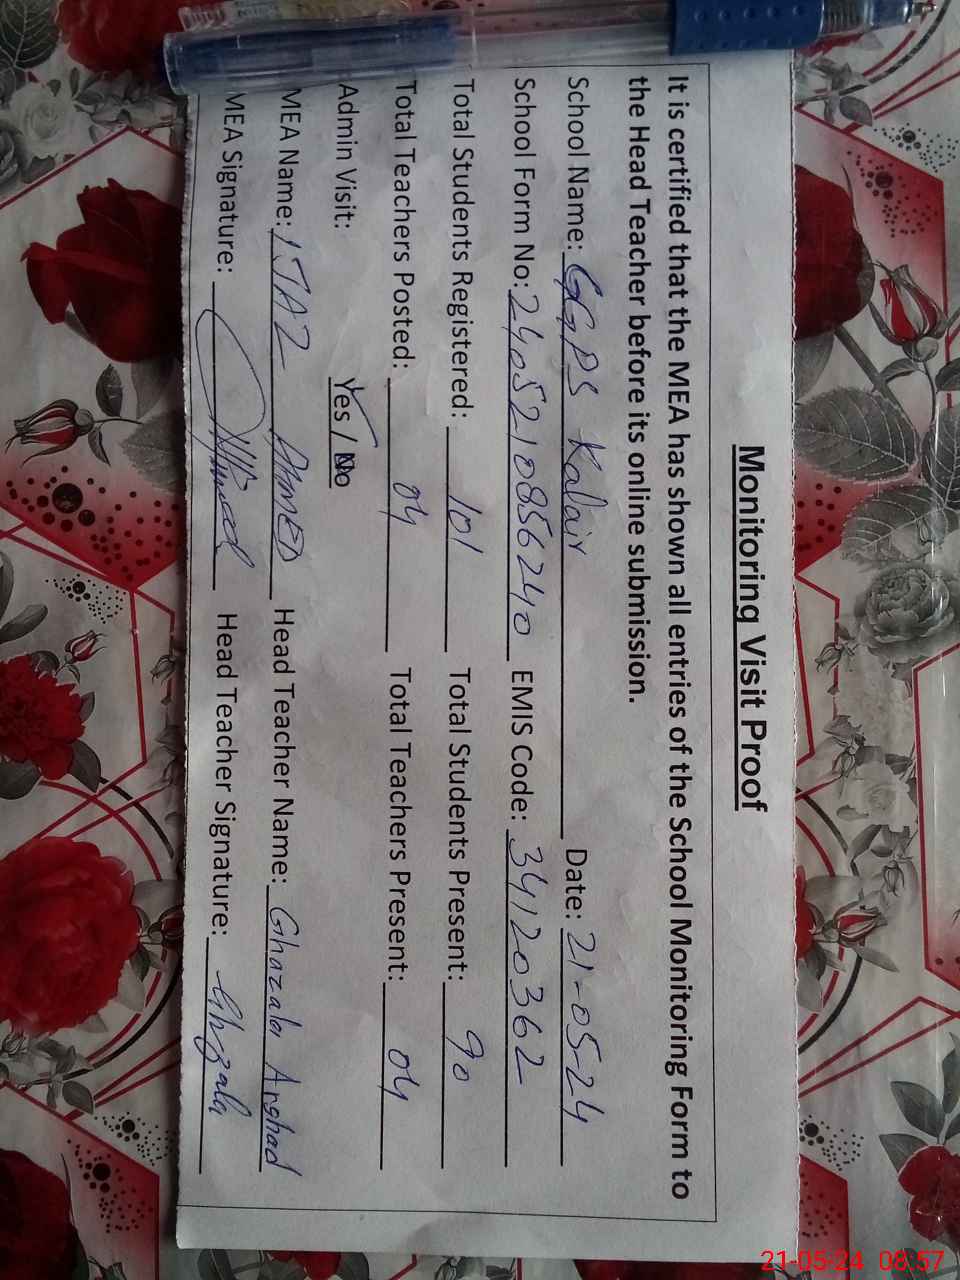 Monitoring Visit Proof
It is certified that the MEA has shown all entries of the School Monitoring Form to
the Head Teacher before its online submission.
School Name: GGPS Kalair Date: 21-05-24
School Form No: 2405210856240 EMIS Code: 34120362
Total Students Registered: 101 Total Students Present: 90
Total Teachers Posted: 04 Total Teachers Present: 04
Admin Visit: Yes / No
MEA Name: IJAZ AHMED Head Teacher Name: Ghazala Arshad
MEA Signature: Head Teacher Signature: Ghzala
21-05-24 08:57